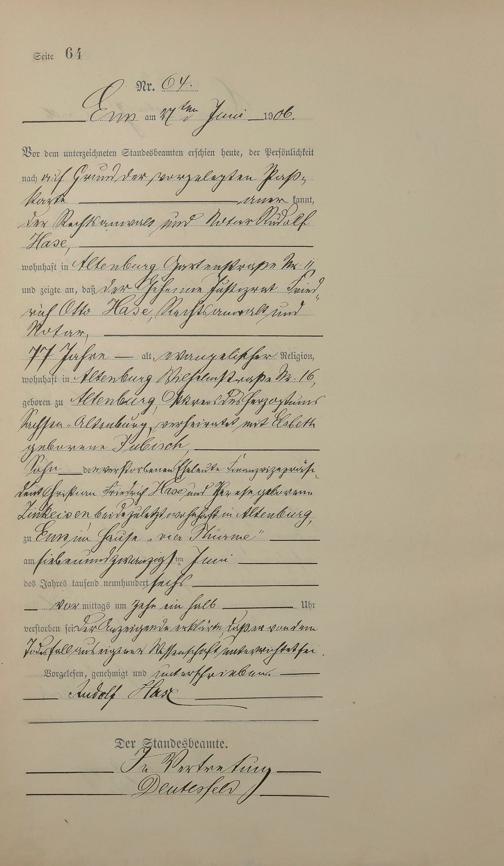 Seite 64
Nr. 64.
Ems am 27ten Juni 1906.
Vor dem unterzeichneten Standesbeamten erschien heute, der Persönlichkeit
nach auf Grund der vorgelegten Paß-
karte anerkannt,
der Rechtsanwalt und Notar Rudolf
Hase,
wohnhaft in Altenburg Gartenstraße Nr. 11,
und zeigte an, daß der Geheime Justizrat Fried-
rich Otto Hase, Rechtsanwalt und
Notar,
77 Jahre alt, evangelischer Religion,
wohnhaft in Altenburg Wilhelmstraße Nr. 16,
geboren zu Altenburg, des Herzogtums
Sachsen-Altenburg, verheiratet mit Elsbeth
geborene Jubisch,
Sohn der verstorbenen Eheleute
Christian Friedrich Hase und Therese geborenen
Zinkeisen beide zuletzt wohnhaft in Altenburg,
zu Ems im Hause "vier Thürme"
am siebenundzwanzigsten Juni
des Jahres tausend neunhundert sechs
vormittags um zehn ein halb Uhr
verstorben sei. Der Anzeigende erklärte, daß er von dem
Todesfall aus eigener Wissenschaft unterrichtet sei.
Vorgelesen, genehmigt und unterschrieben.
Rudolf Hase
Der Standesbeamte.
In Vertretung